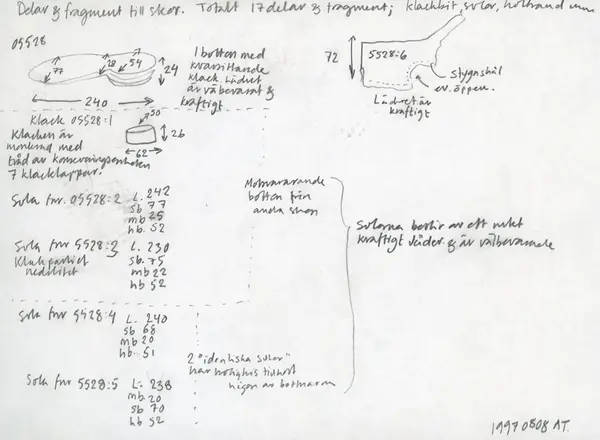 Delar & fragment till skor. Totalt 17 delar & fragment; klackbit, sulor, hålrand mm
05528
77
28
54
24
240
1 botten med
kvarsittande
klack. Lädret
är välbevarat &
kraftigt
72
5528:6
Stygnshål
ev. öppen.
Lädret är
kraftigt
Klack 05528:1
Klacken är
monterad med
tråd av konserveringsenheten
7 klacklappar.
50
26
62
Sula fnr. 05528:2
L. 242
sb 77
mb 25
hb. 52
Motsvarande
botten från
andra skon
Sula fnr 5528:3
Klackpartiet
nedslitet
L. 230
sb. 75
mb 22
hb 52
Sulorna består av ett mkt
kraftigt läder & är välbevarade
Sula fnr 5528:4
L. 240
sb 68
mb 20
hb. 51
2 "identiska sulor"
har möjligtvis tillhört
någon av bottnarna
Sula fnr 5528:5
L. 238
mb. 20
sb 70
hb 52
19970808 AT.